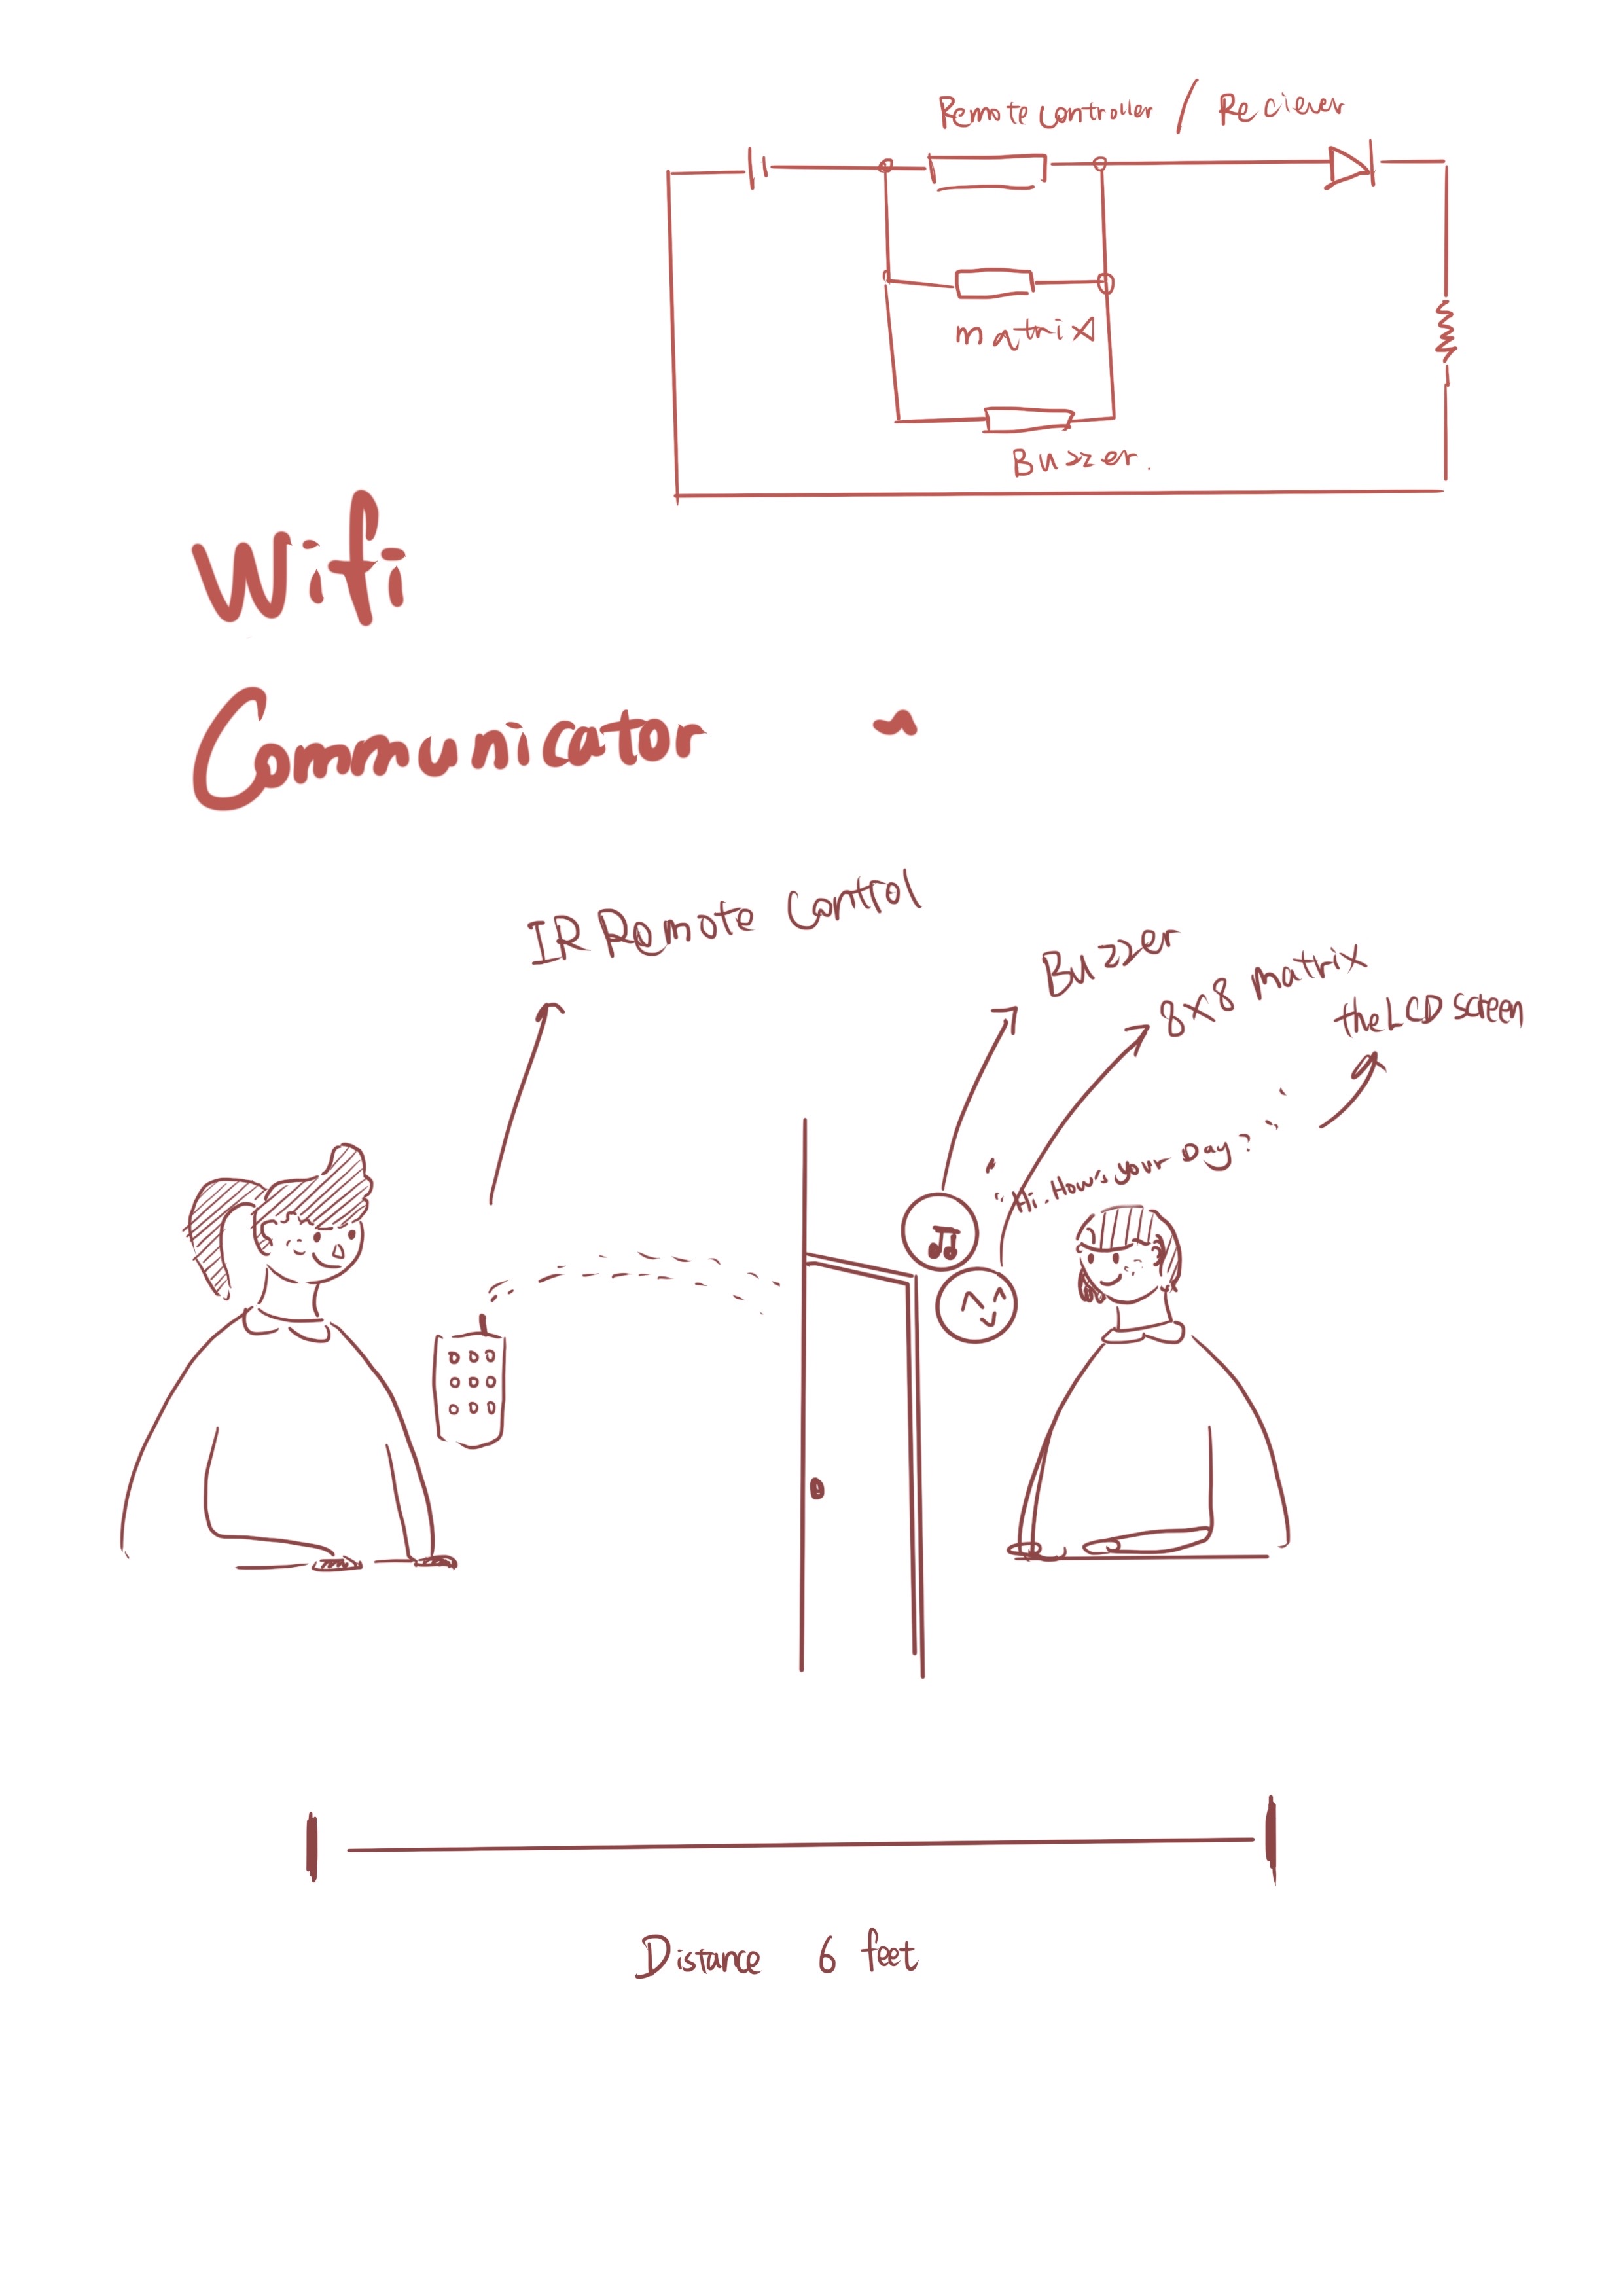 Remote Controller / Reciever
matrix
Buzzer.
Wifi
Communicator
IR Remote Control
Buzzer
8x8 Matrix
the LCD screen
"Hi. How's your Day?"
Distance 6 feet